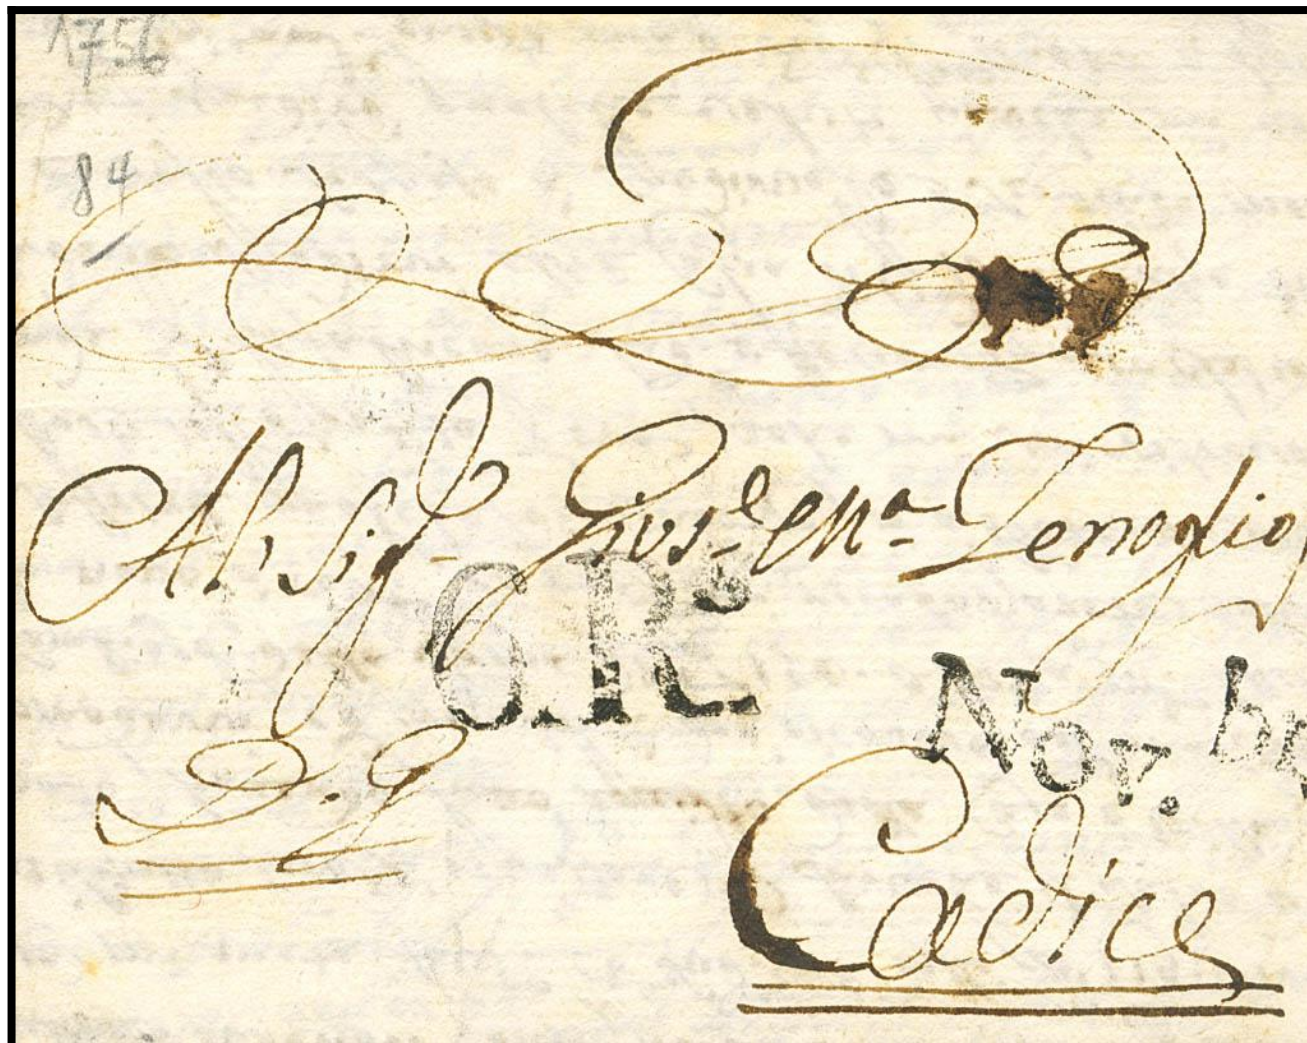 1756
84
Al Sig.r Gius.e M.a Zenoglio
6.Rs.
Nov. br
D. G
Cadice